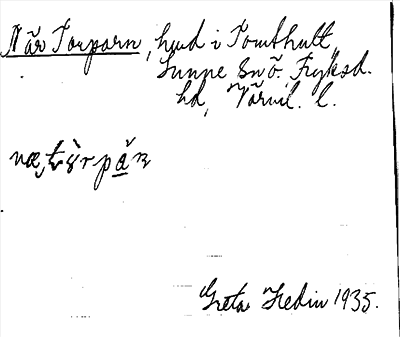 När Torparn, hmd i Tomthult,
Sunne snő, Fryksd.
hd, Värml. l.
Greta Hedin 1935.